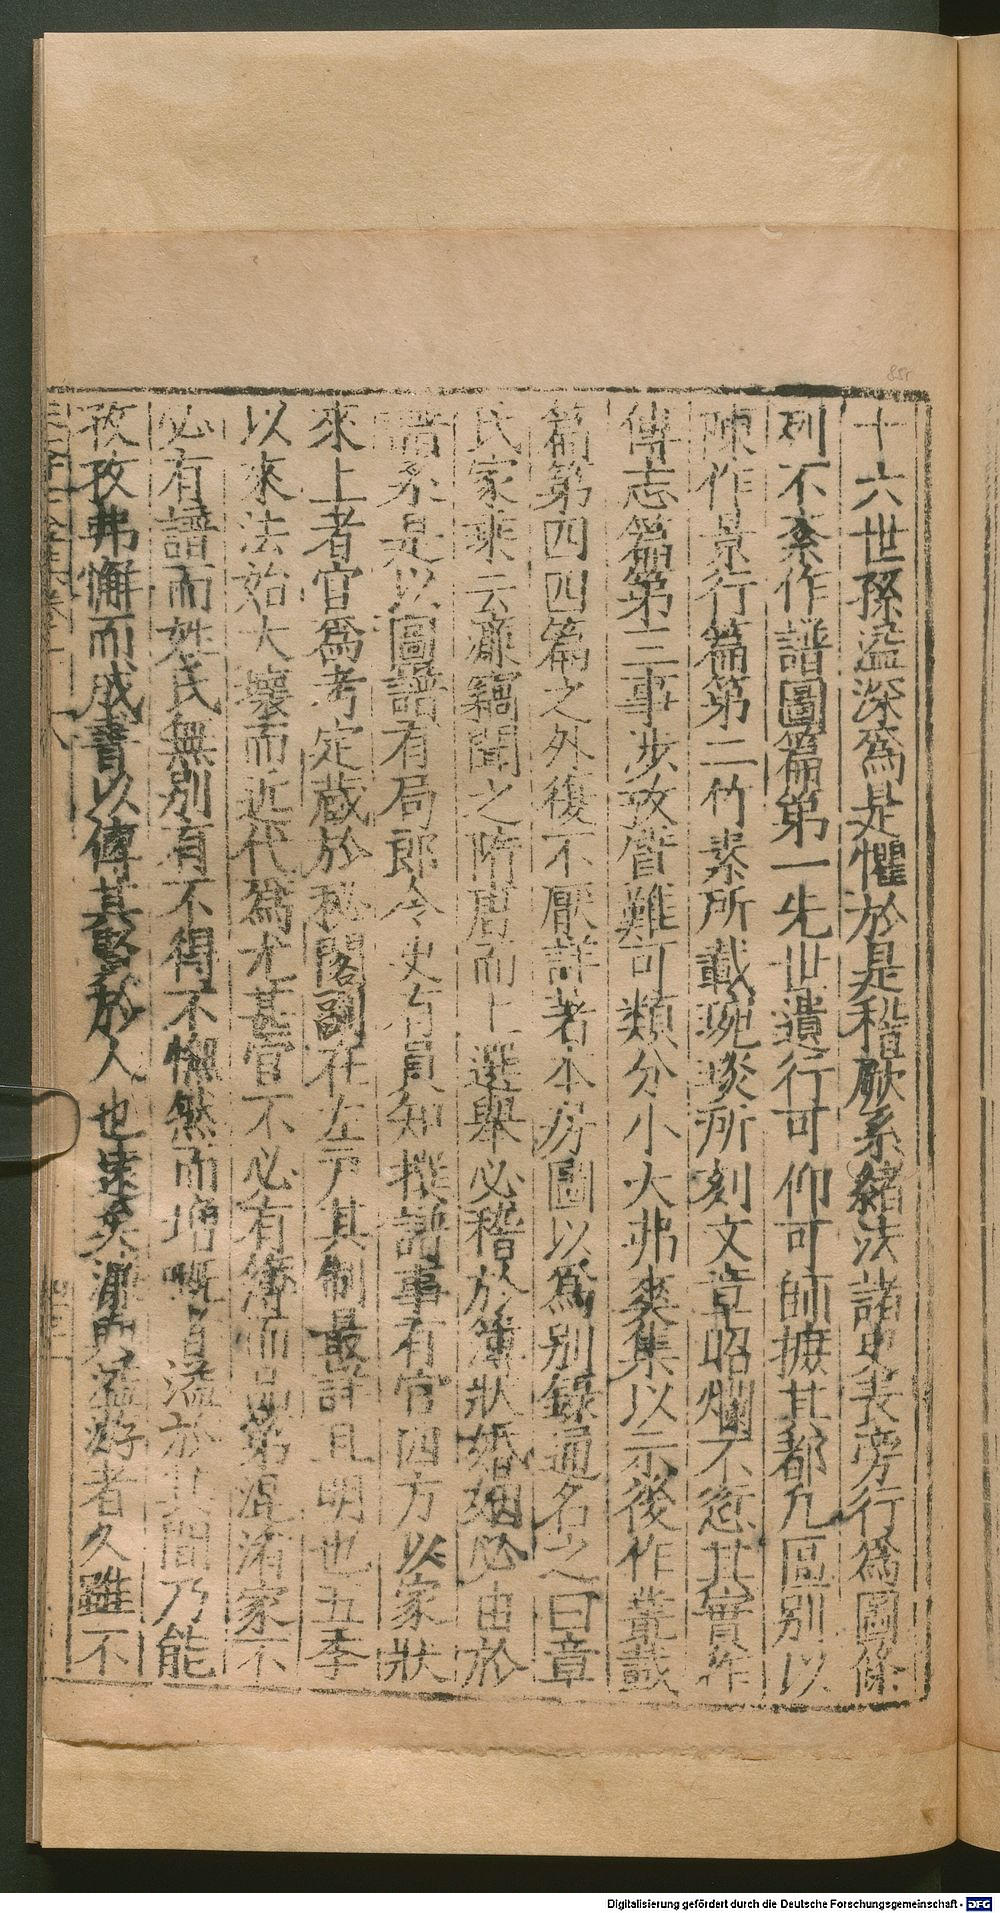 十六世孫溢深爲是懼於是稽厥系緒法諸史表旁行爲圖係
列不紊作譜圖篇第一先世遺行可仰可師摭其都凡區別以
陳作景行篇第二竹素所載琬琰所刻文章昭爛不愆其實作
傳志篇第三事涉攷晉難可類分小大弗爽集以示後作叢載
篇第四四篇之外復不厭詳著本房圖以爲别録通名之曰章
氏家乘云濂竊聞之隋唐而上選舉必稽於簿狀婚姻必由於
譜系是以圖譜有局郎令史有員知撰譜事有官四方以家狀
來上者官爲考定蔵於秘閣副在左戸其制最詳且明也五季
以來法始大壞而近代爲尤甚官不必有簿而品第混淆家不
必有譜而姓氏無別有不得不憮然而増嘅者溢於其間乃能
孜孜弗懈而成書以傳其賢於人也逺矣濂與溢㳺者久雖不
85r
Digitalisierung gefördert durch die Deutsche Forschungsgemeinschaft - DFG